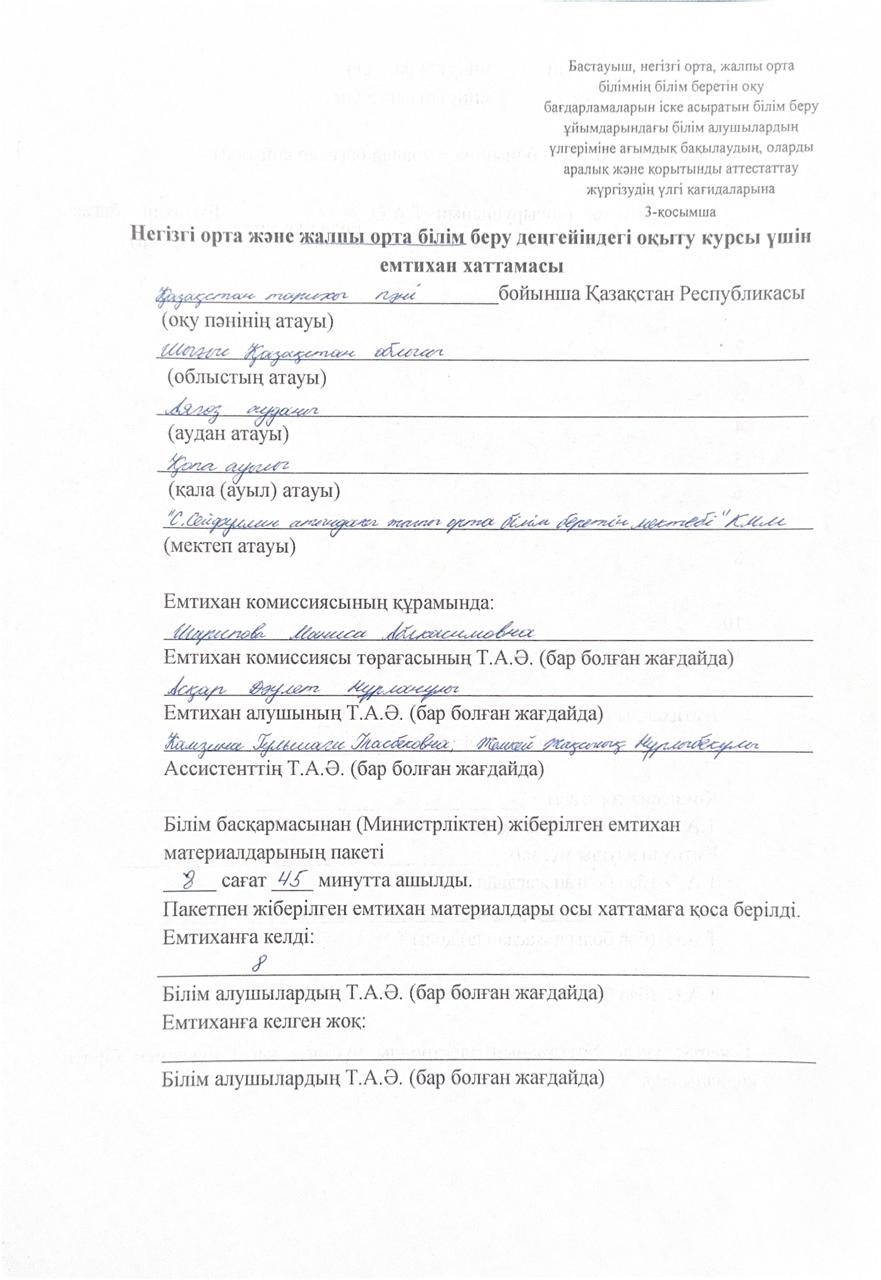 Бастауыш, негізгі орта, жалпы орта
білімнің білім беретін оқу
бағдарламаларын іске асыратын білім беру
ұйымдарындағы білім алушылардың
үлгеріміне ағымдық бақылаудың, оларды
аралық және қорытынды аттестаттау
жүргізудің үлгі қағидаларына
3-қосымша
Негізгі орта және жалпы орта білім беру деңгейіндегі оқыту курсы үшін
емтихан хаттамасы
Қазақстан тарихы пәні бойынша Қазақстан Республикасы
(оқу пәнінің атауы)
Шығыс Қазақстан облысы
(облыстың атауы)
Аягөз ауданы
(аудан атауы)
Қопа ауылы
(қала (ауыл) атауы)
"С.Сейфуллин атындағы жалпы орта білім беретін мектебі" КММ
(мектеп атауы)
Емтихан комиссиясының құрамында:
Шарипова Абдкасимовна
Емтихан комиссиясы төрағасының Т.А.Ә. (бар болған жағдайда)
Асқар Дәулет Нұрланұлы
Емтихан алушының Т.А.Ә. (бар болған жағдайда)
Камзина Тасбековна, Нұрлыбекұлы
Ассистенттің Т.А.Ә. (бар болған жағдайда)
Білім басқармасынан (Министрліктен) жіберілген емтихан
материалдарының пакеті
8 сағат 45 минутта ашылды.
Пакетпен жіберілген емтихан материалдары осы хаттамаға қоса берілді.
Емтиханға келді:
8
Білім алушылардың Т.А.Ә. (бар болған жағдайда)
Емтиханға келген жоқ:
Білім алушылардың Т.А.Ә. (бар болған жағдайда)